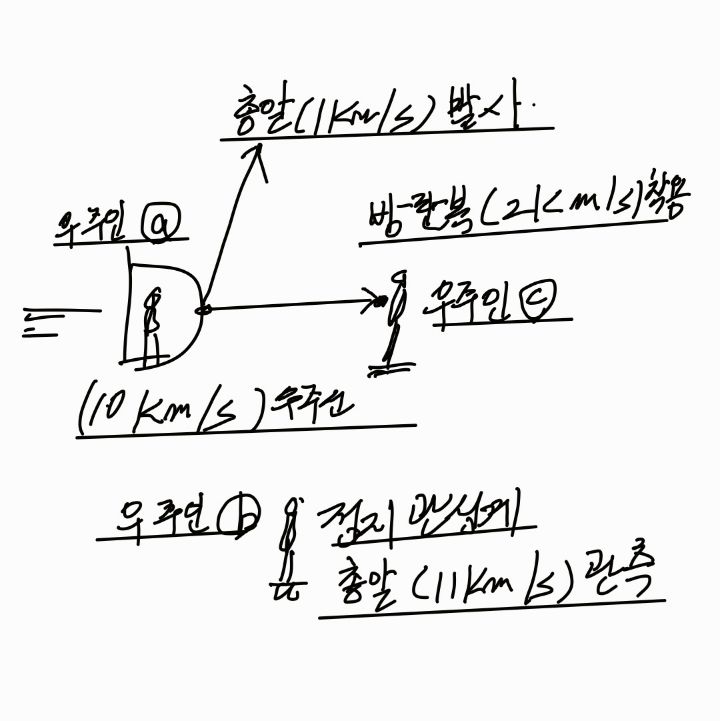 총알(1km/s) 발사.
방탄복(2km/s)착용
우주인 ⓐ
우주인 ⓒ
(10km/s)우주선
우주인 ⓑ 정지 관성계
총알 (11km/s) 관측